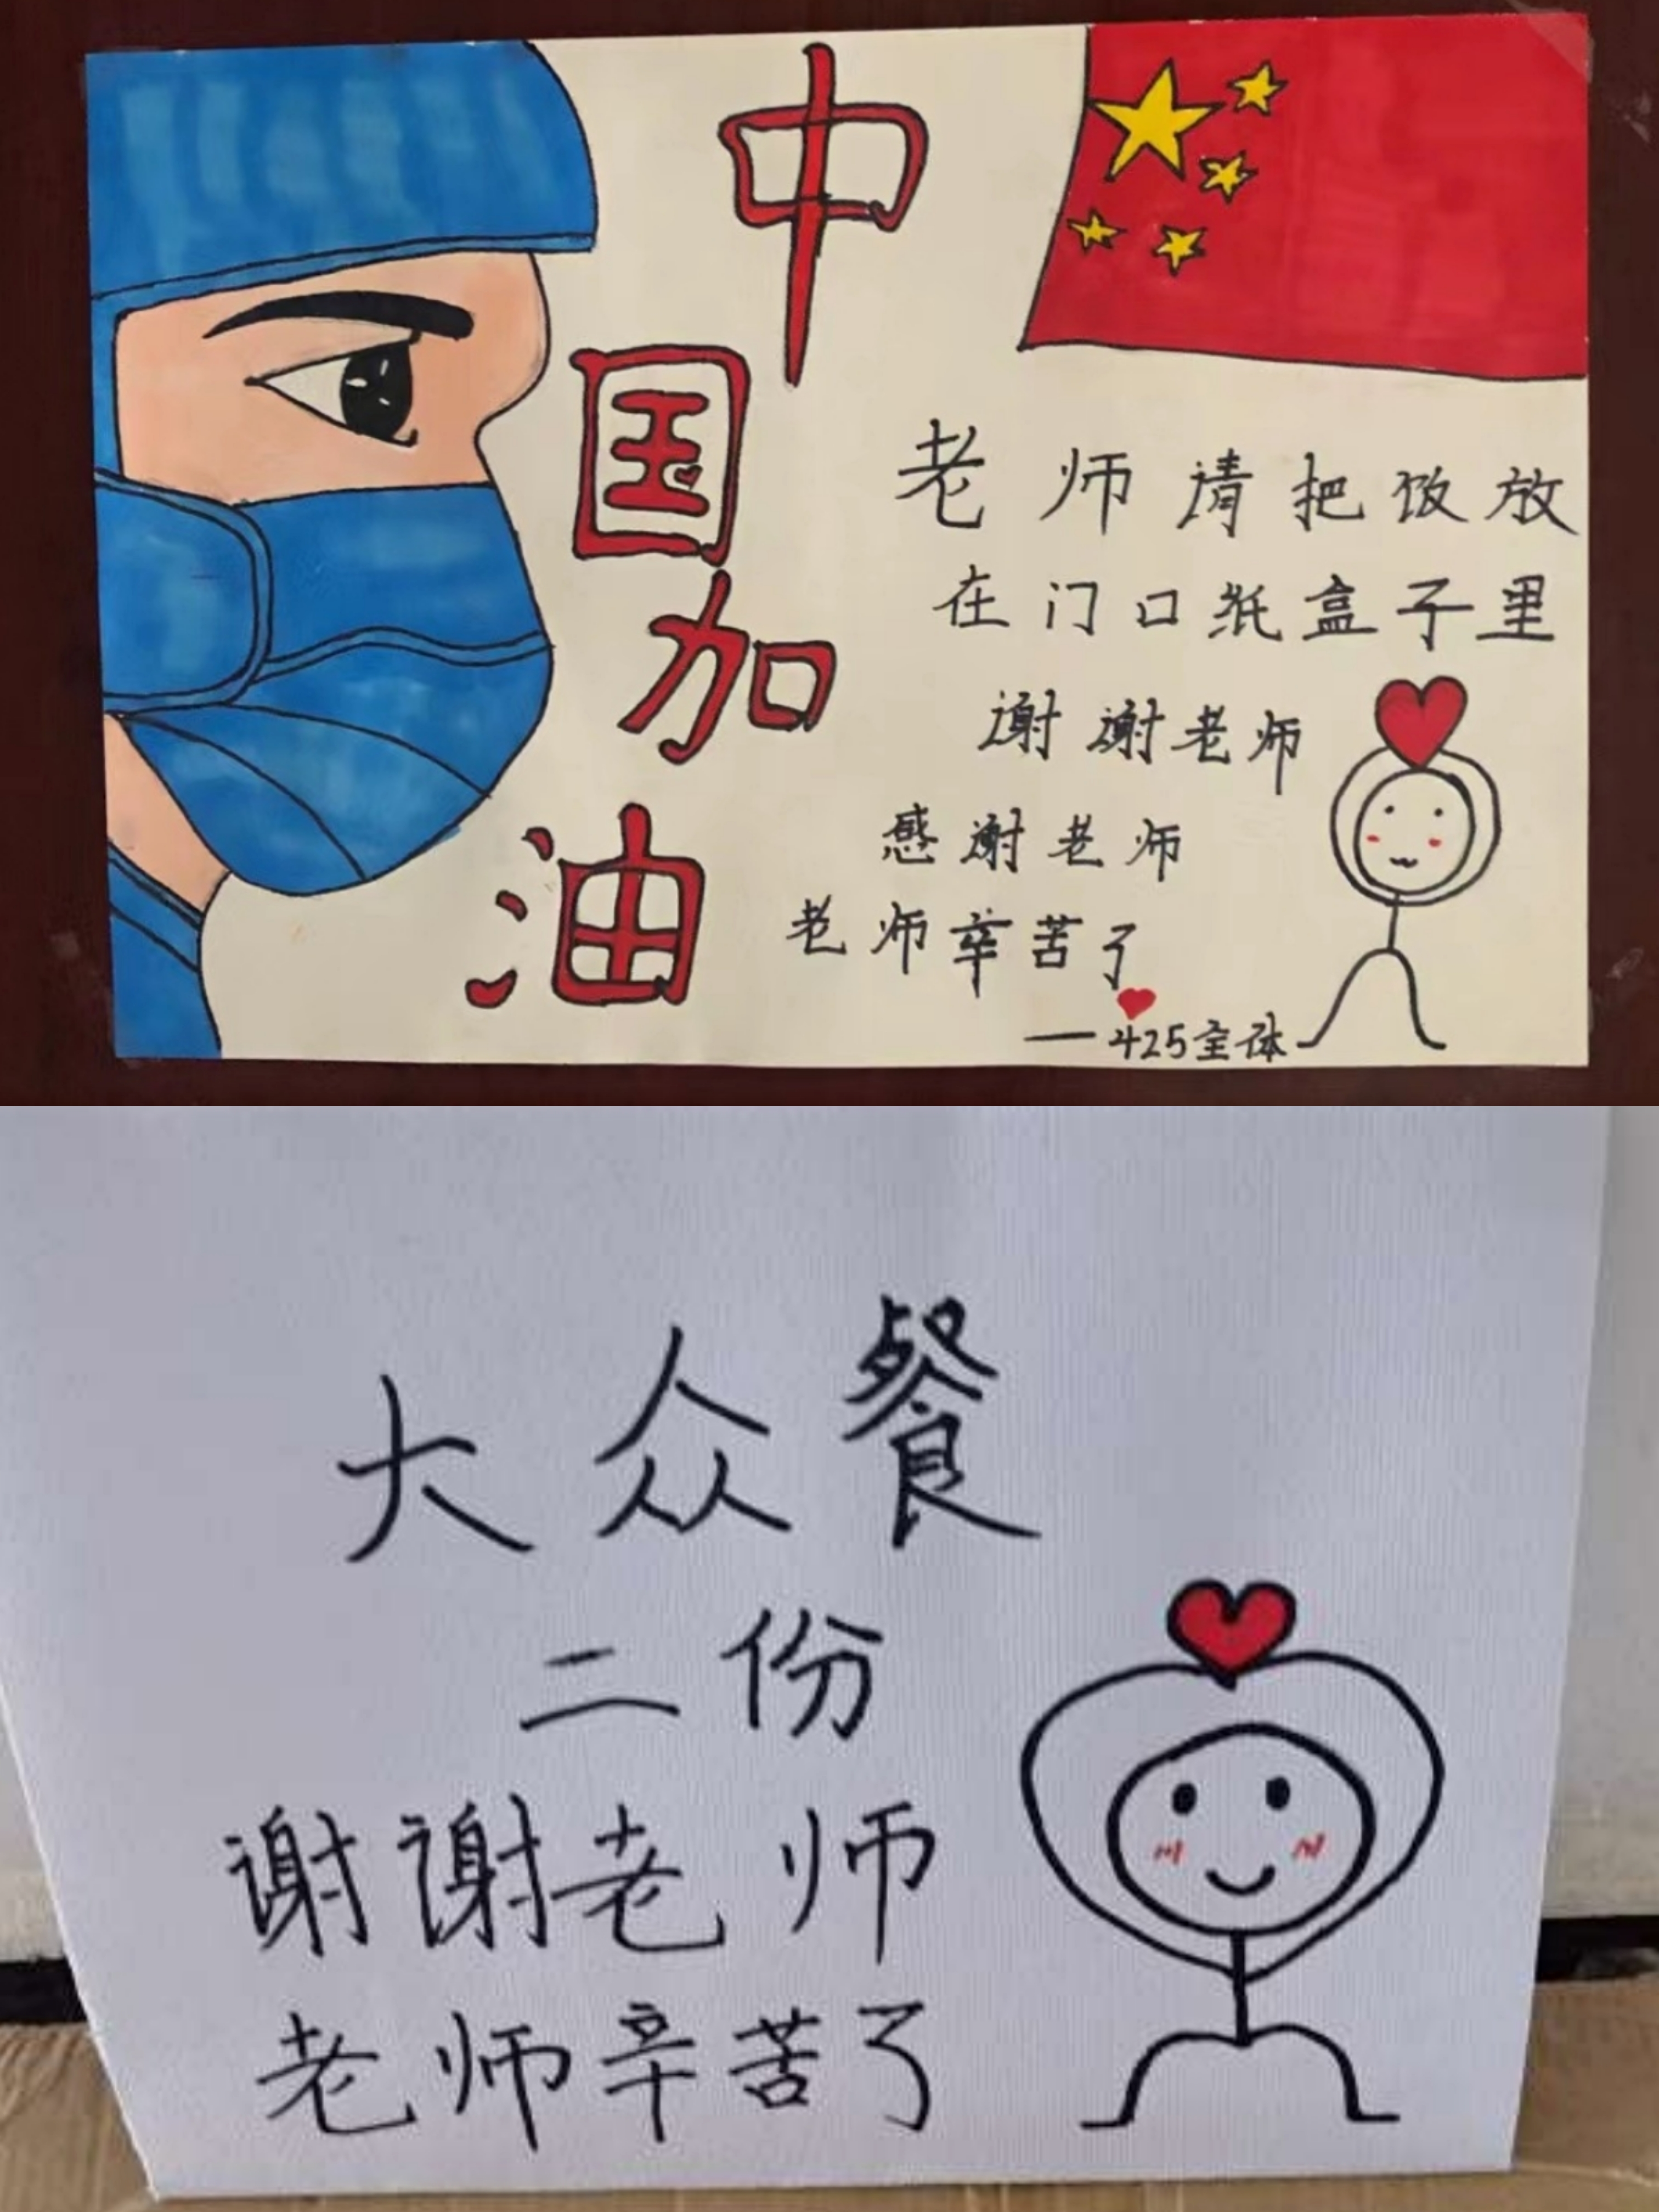 中国加油
老师请把饭放
在门口纸盒子里
谢谢老师
感谢老师
老师辛苦了
——425全体
大众餐
二份
谢谢老师
老师辛苦了